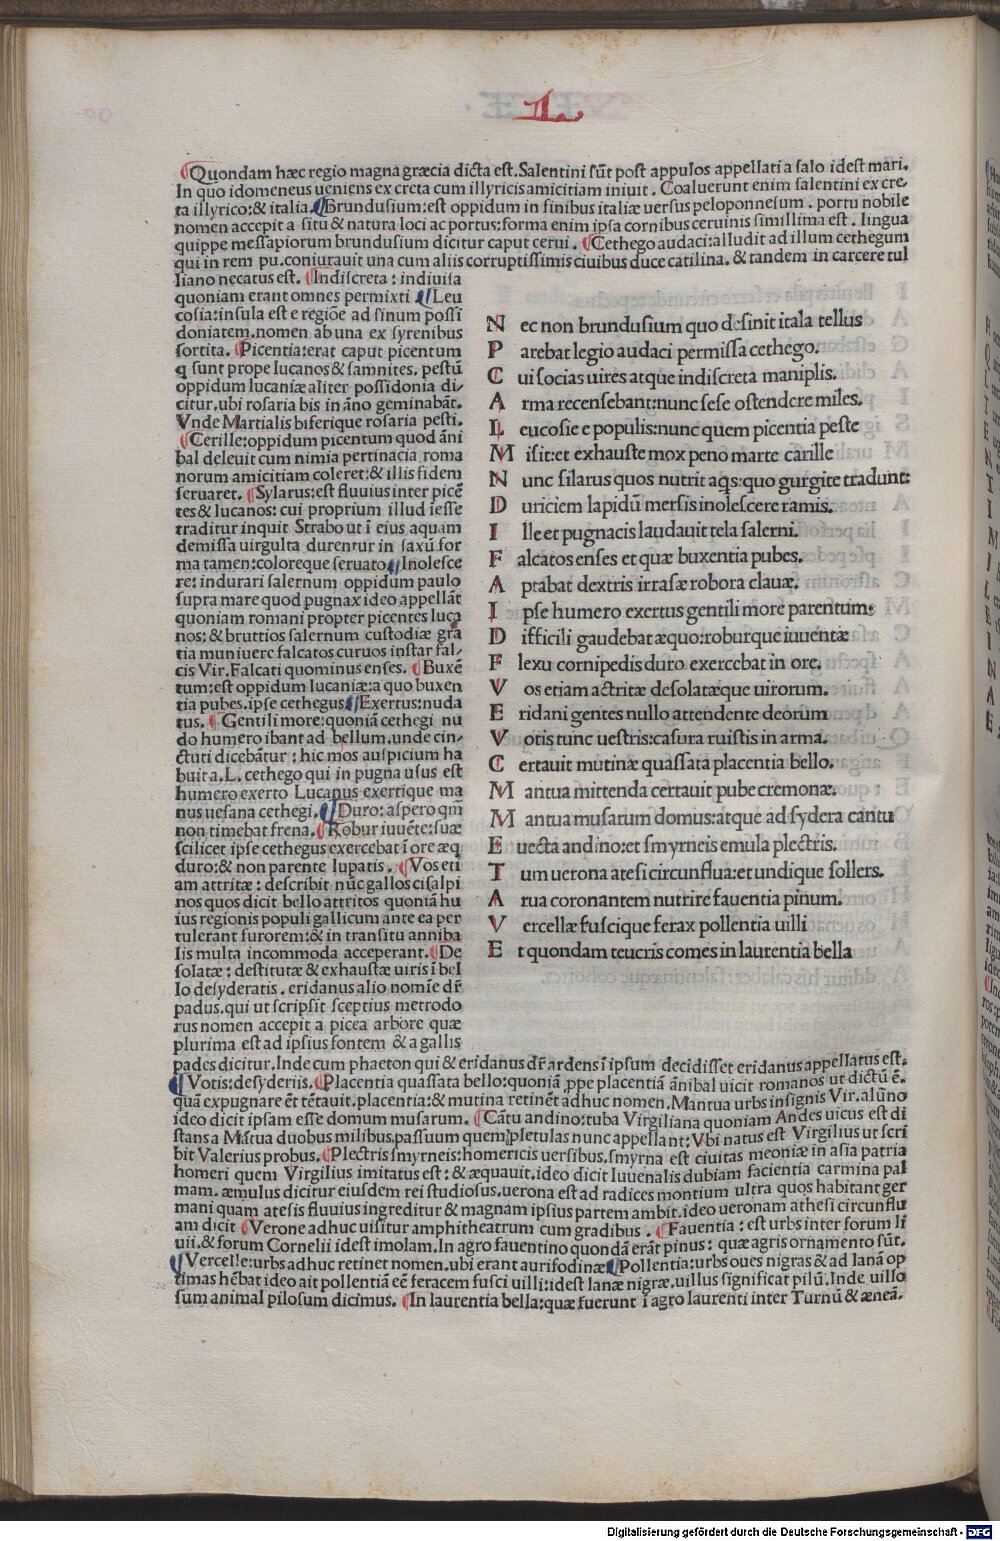 L.
¶Quondam hæc regio magna græcia dicta est. Salentini sūt post appulos appellati a salo idest mari.
In quo idomeneus ueniens ex creta cum illyricis amicitiam iniuit. Coaluerunt enim salentini ex cre⸗
ta illyrico:& italia. ¶Brundusium:est oppidum in finibus italiæ uersus peloponnesum. portu nobile
nomen accepit a situ & natura loci ac portus:forma enim ipsa cornibus ceruinis simillima est. lingua
quippe messapiorum brundusium dicitur caput cerui. ¶Cethego audaci:alludit ad illum cethegum
qui in rem pu.coniurauit una cum aliis corruptissimis ciuibus duce catilina. & tandem in carcere tul
liano necatus est. ¶Indiscreta: indiuisa
quoniam erant omnes permixti ¶Leu
cosia:insula est e regiōe ad sinum possi
doniatem.nomen ab una ex syrenibus
sortita. ¶Picentia:erat caput picentum
q sunt prope lucanos & samnites. pestū
oppidum lucaniæ aliter possidonia di⸗
citur.ubi rosaria bis in āno geminabāt.
Vnde Martialis biferique rosaria pesti.
¶Cerille:oppidum picentum quod āni
bal deleuit cum nimia pertinacia roma
norum amicitiam coleret:& illis fidem
seruaret. ¶Sylarus:est fluuius inter picē
tes & lucanos: cui proprium illud iesse
traditur inquit Strabo ut ī eius aquam
demissa uirgulta durentur in saxū for
ma tamen:coloreque seruato ¶Inolesce
re: indurari salernum oppidum paulo
supra mare quod pugnax ideo appellāt
quoniam romani propter picentes luca
nos: & bruttios salernum custodiæ gra
tia muniuere falcatos curuos instar fal⸗
cis Vir.Falcati quominus enses. ¶Buxē
tum:est oppidum lucaniæ:a quo buxen
tia pubes.ipse cethegus ¶Exertus:nuda
tus. ¶Gentili more:quoniā cethegi nu
do humero ibant ad bellum.unde cin⸗
ctuti dicebāntur: hic mos auspicium ha
buit a.L. cethego qui in pugna usus est
humero exerto Lucanus exertique ma
nus uesana cethegi. ¶Duro:aspero qm̄
non timebat frena. ¶Robur iuuēte:suæ
scilicet ipse cethegus exercebat ī ore æq
duro:& non parente lupatis. ¶Vos eti
am attritæ: describit nūc gallos cisalpi
nos quos dicit bello attritos quoniā hu
ius regionis populi gallicum ante ea per
tulerant furorem:& in transitu anniba
lis multa incommoda acceperant. ¶De
solatæ: destitutæ & exhaustæ uiris ī bel
lo desyderatis. eridanus alio nomīe dr̄
padus.qui ut scripsit sceptius metrodo
rus nomen accepit a picea arbore quæ
plurima est ad ipsius fontem & a gallis
pades dicitur.Inde cum phaeton qui & eridanus dr̄ ardens ī ipsum decidisset eridanus appellatus est.
¶Votis:desyderiis. ¶Placentia quassata bello:quoniā ppe placentiā ānibal uicit romanos ut dictū ē.
quā expugnare ēt tētauit.placentia:& mutina retinēt adhuc nomen.Mantua urbs insignis Vir.alūno
ideo dicit ipsam esse domum musarum. ¶Cātu andino:tuba Virgiliana quoniam Andes uicus est di
stans a Mātua duobus milibus.passuum quem ipsetulas nunc appellant: Vbi natus est Virgilius ut scri
bit Valerius probus. ¶Plectris smyrneis:homericis uersibus.smyrna est ciuitas meoniæ in asia patria
homeri quem Virgilius imitatus est: & æquauit.ideo dicit Iuuenalis dubiam facientia carmina pal
mam. æmulus dicitur eiusdem rei studiosus.uerona est ad radices montium ultra quos habitant ger
mani quam atesis fluuius ingreditur & magnam ipsius partem ambit.ideo ueronam athesi circunflu
am dicit ¶Verone adhuc uisitur amphitheatrum cum gradibus. ¶Fauentia: est urbs inter forum li
uii.& forum Cornelii idest imolam.In agro fauentino quondā erāt pinus: quæ agris ornamento sūt.
¶Vercelle:urbs adhuc retinet nomen.ubi erant aurifodinæ ¶Pollentia:urbs oues nigras & ad lanā op
timas hēbat ideo ait pollentiā eē feracem fusci uilli:idest lanæ nigræ.uillus significat pilū.Inde uillo
sum animal pilosum dicimus. ¶In laurentia bella:quæ fuerunt ī agro laurenti inter Turnū & æneā.
N ec non brundusium quo desinit itala tellus
P arebat legio audaci permissa cethego.
C ui socias uires atque indiscreta maniplis.
A rma recensebant:nunc sese ostendere miles.
L eucosie e populis:nunc quem picentia peste
M isit:et exhauste mox peno marte carille
N unc silarus quos nutrit aqs:quo gurgite tradunt:
D uriciem lapidū mersis inolescere ramis.
I lle et pugnacis laudauit tela salerni.
F alcatos enses et quæ buxentia pubes.
A ptabat dextris irrasæ robora clauæ.
I pse humero exertus gentili more parentum:
D ifficili gaudebat æquo:roburque iuuentæ
F lexu cornipedis duro exercebat in ore.
V os etiam actritæ desolatæque uirorum.
E ridani gentes nullo attendente deorum
V otis tunc uestris:casura ruistis in arma.
C ertauit mutinæ quassata placentia bello.
M antua mittenda certauit pube cremonæ.
M antua musarum domus:atque ad sydera cantu
E uecta andino:et smyrneis emula plectris.
T um uerona atesi circunflua:et undique sollers.
A rua coronantem nutrire fauentia pinum.
V ercellæ fuscique ferax pollentia uilli
E t quondam teucris comes in laurentia bella
Digitalisierung gefördert durch die Deutsche Forschungsgemeinschaft - DFG